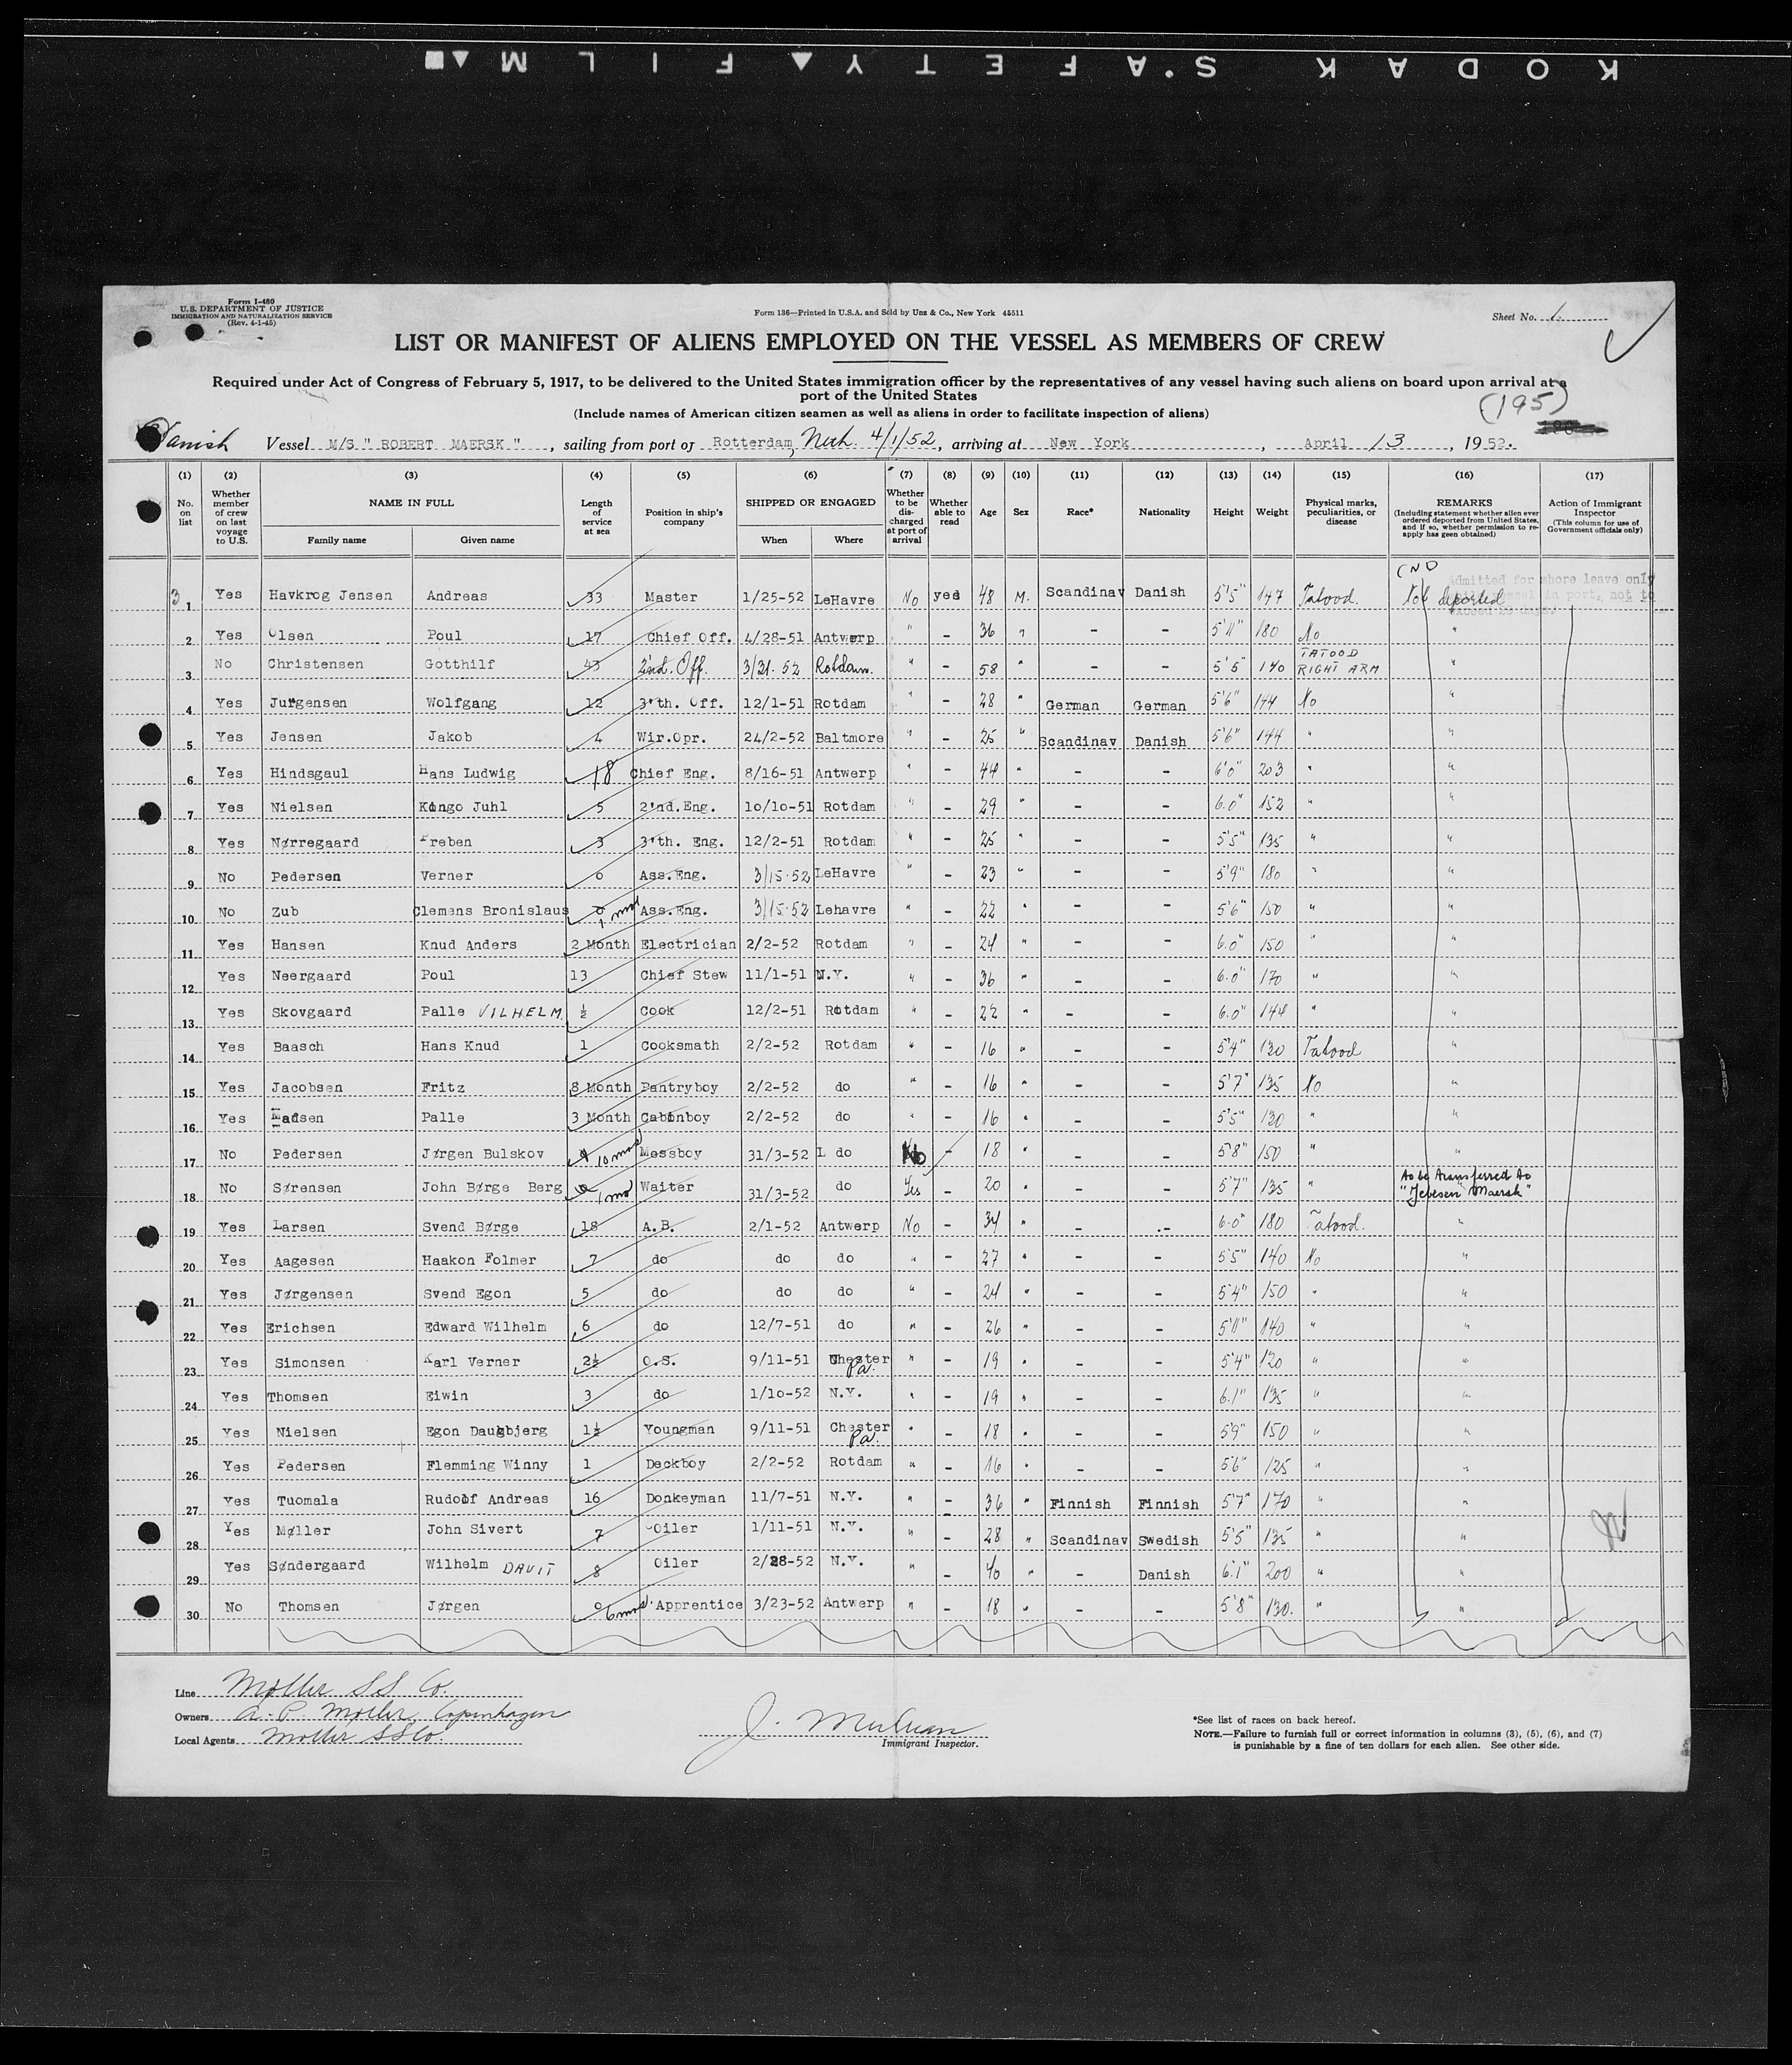 KODAK S'AFETY▲FILM▲■
Form I-480
U.S. DEPARTMENT OF JUSTICE
IMMIGRATION AND NATURALIZATION SERVICE
(Rev. 4-1-45)
Form 136—Printed in U.S.A. and Sold by Unz & Co., New York 45511
Sheet No. 1
LIST OR MANIFEST OF ALIENS EMPLOYED ON THE VESSEL AS MEMBERS OF CREW
Required under Act of Congress of February 5, 1917, to be delivered to the United States immigration officer by the representatives of any vessel having such aliens on board upon arrival at a
port of the United States
(Include names of American citizen seamen as well as aliens in order to facilitate inspection of aliens)
(195)
Danish Vessel M/S " ROBERT MAERSK ", sailing from port of Rotterdam, Neth. 4/1/52, arriving at New York, April 13, 1952.
(1) (2) (3) (4) (5) (6) (7) (8) (9) (10) (11) (12) (13) (14) (15) (16) (17)
No. on list
Whether member of crew on last voyage to U.S.
NAME IN FULL
Family name Given name
Length of service at sea
Position in ship's company
SHIPPED OR ENGAGED
When Where
Whether to be discharged at port of arrival
Whether able to read
Age Sex Race* Nationality Height Weight
Physical marks, peculiarities, or disease
REMARKS
(Including statement whether alien ever ordered deported from United States, and if so, whether permission to re-apply has geen obtained)
Action of Immigrant Inspector
(This column for use of Government officials only)
Admitted for shore leave only
3 1 Yes Havkrog Jensen Andreas 33 Master 1/25-52 LeHavre No yes 48 M. Scandinav Danish 5'5" 147 Tatood. Not deported
2 Yes Olsen Poul 17 Chief Off. 4/28-51 Antwerp " - 36 " - - 5'11" 180 No "
3 No Christensen Gotthilf 43 2nd. Off. 3/31-52 Rotdam. " - 58 " - - 5'5" 140 TATOOD RIGHT ARM "
4 Yes Jurgensen Wolfgang 12 3'th. Off. 12/1-51 Rotdam " - 28 " German German 5'6" 144 No "
5 Yes Jensen Jakob 4 Wir.Opr. 24/2-52 Baltmore " - 25 " Scandinav Danish 5'6" 144 " "
6 Yes Hindsgaul Hans Ludwig 18 Chief Eng. 8/16-51 Antwerp " - 44 " - - 6'0" 203 " "
7 Yes Nielsen Kingo Juhl 5 2'nd.Eng. 10/10-51 Rotdam " - 29 " - - 6.0" 152 " "
8 Yes Nørregaard Preben 3 3'th. Eng. 12/2-51 Rotdam " - 25 " - - 5'5" 135 " "
9 No Pedersen Verner 0 Ass.Eng. 3/15-52 LeHavre " - 23 " - - 5'9" 180 " "
10 No Zub Clemens Bronislaus 0 1 mos Ass.Eng. 3/15-52 Lehavre " - 22 " - - 5'6" 150 " "
11 Yes Hansen Knud Anders 2 Month Electrician 2/2-52 Rotdam " - 24 " - - 6.0" 150 " "
12 Yes Neergaard Poul 13 Chief Stew 11/1-51 N.Y. " - 36 " - - 6.0" 170 " "
13 Yes Skovgaard Palle VILHELM. ½ Cook 12/2-51 Rotdam " - 22 " - - 6.0" 144 " "
14 Yes Baasch Hans Knud 1 Cooksmath 2/2-52 Rotdam " - 16 " - - 5'4" 130 Tatood "
15 Yes Jacobsen Fritz 8 Month Pantryboy 2/2-52 do " - 16 " - - 5'7" 135 No "
16 Yes Madsen Palle 3 Month Cabinboy 2/2-52 do " - 16 " - - 5'5" 130 " "
17 No Pedersen Jørgen Bulskov 10 mos Messboy 31/3-52 L do No - 18 " - - 5'8" 150 " "
18 No Sørensen John Børge Berg 1 mo Waiter 31/3-52 do Yes - 20 " - - 5'7" 135 " to be transferred to "Jebesen Maersk"
19 Yes Larsen Svend Børge 18 A.B. 2/1-52 Antwerp No - 34 " - - 6.0" 180 Tatood. "
20 Yes Aagesen Haakon Folmer 7 do do do " - 27 " - - 5'5" 140 No "
21 Yes Jørgensen Svend Egon 5 do do do " - 24 " - - 5'4" 150 " "
22 Yes Erichsen Edward Wilhelm 6 do 12/7-51 do " - 26 " - - 5'11" 140 " "
23 Yes Simonsen Karl Verner 2½ O.S. 9/11-51 Chester Pa. " - 19 " - - 5'4" 120 " "
24 Yes Thomsen Eiwin 3 do 1/10-52 N.Y. " - 19 " - - 6.1" 135 " "
25 Yes Nielsen Egon Daugbjerg 1½ Youngman 9/11-51 Chester Pa. " - 18 " - - 5'9" 150 " "
26 Yes Pedersen Flemming Winny 1 Deckboy 2/2-52 Rotdam " - 16 " - - 5'6" 125 " "
27 Yes Tuomala Rudolf Andreas 16 Donkeyman 11/7-51 N.Y. " - 36 " Finnish Finnish 5'7" 170 " "
28 Yes Møller John Sivert 7 Oiler 1/11-51 N.Y. " - 28 " Scandinav Swedish 5'5" 135 " "
29 Yes Søndergaard Wilhelm DAVIT 8 Oiler 2/28-52 N.Y. " - 40 " - Danish 6'1" 200 " "
30 No Thomsen Jørgen 0 6 mos Apprentice 3/23-52 Antwerp " - 18 " - - 5'8" 130. " "
Line Moller S S Co.
Owners A. P. Moller, Copenhagen
Local Agents Moller S S Co.
Immigrant Inspector.
*See list of races on back hereof.
NOTE.—Failure to furnish full or correct information in columns (3), (5), (6), and (7)
is punishable by a fine of ten dollars for each alien. See other side.